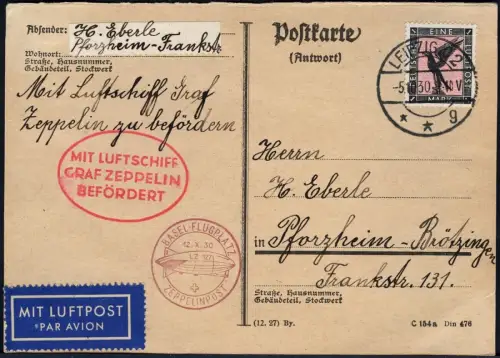 Absender: H. Eberle
Wohnort: Pforzheim-Frankstr
Straße, Hausnummer,
Gebäudeteil, Stockwerk
Mit Luftschiff Graf
Zeppelin zu befördern
MIT LUFTSCHIFF
GRAF ZEPPELIN
BEFÖRDERT
BASEL-FLUGPLATZ
12.X.30
ZEPPELINPOST
MIT LUFTPOST
PAR AVION
Postkarte
(Antwort)
EINE
MARK
LEIPZIG
g
Herrn
H. Eberle
in Pforzheim-Brötzingen
Frankstr. 131.
Straße, Hausnummer,
Gebäudeteil, Stockwerk
(12. 27) By.
C 154a Din 476